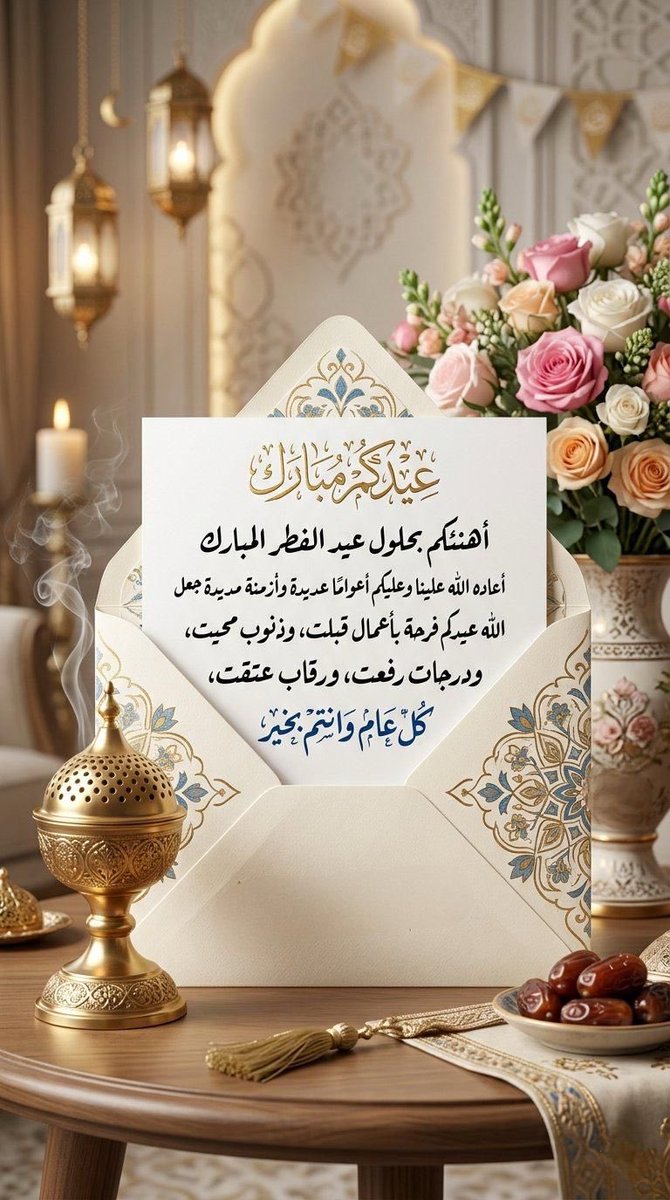 عِيْدُكُمْ مُبَارَك
أهنئكم بحلول عيد الفطر المبارك
أعاده الله علينا وعليكم أعوامًا عديدة وأزمنة مديدة جعل
الله عيدكم فرحة بأعمال قبلت، وذنوب محيت،
ودرجات رفعت، ورقاب عتقت،
كُلّ عَامْ وَانتمْ بخير